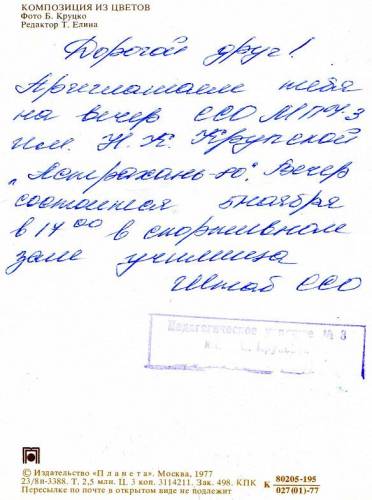 КОМПОЗИЦИЯ ИЗ ЦВЕТОВ
Фото Б. Круцко
Редактор Т. Елина
Дорогой друг!
Приглашаем тебя
на вечер ССО МПУ-3
им. Н. К. Крупской
„Астрахань-10". Вечер
состоится 5 ноября
в 17⁰⁰ в спортивном
зале училища
Штаб ССО
Педагогическое училище № 3
© Издательство «Планета». Москва, 1977
23/8п-3388. Т. 2,5 млн. Ц. 3 коп. 3114211. Зак. 498. КПК
Пересылке по почте в открытом виде не подлежит
К 80205-195
027(01)-77